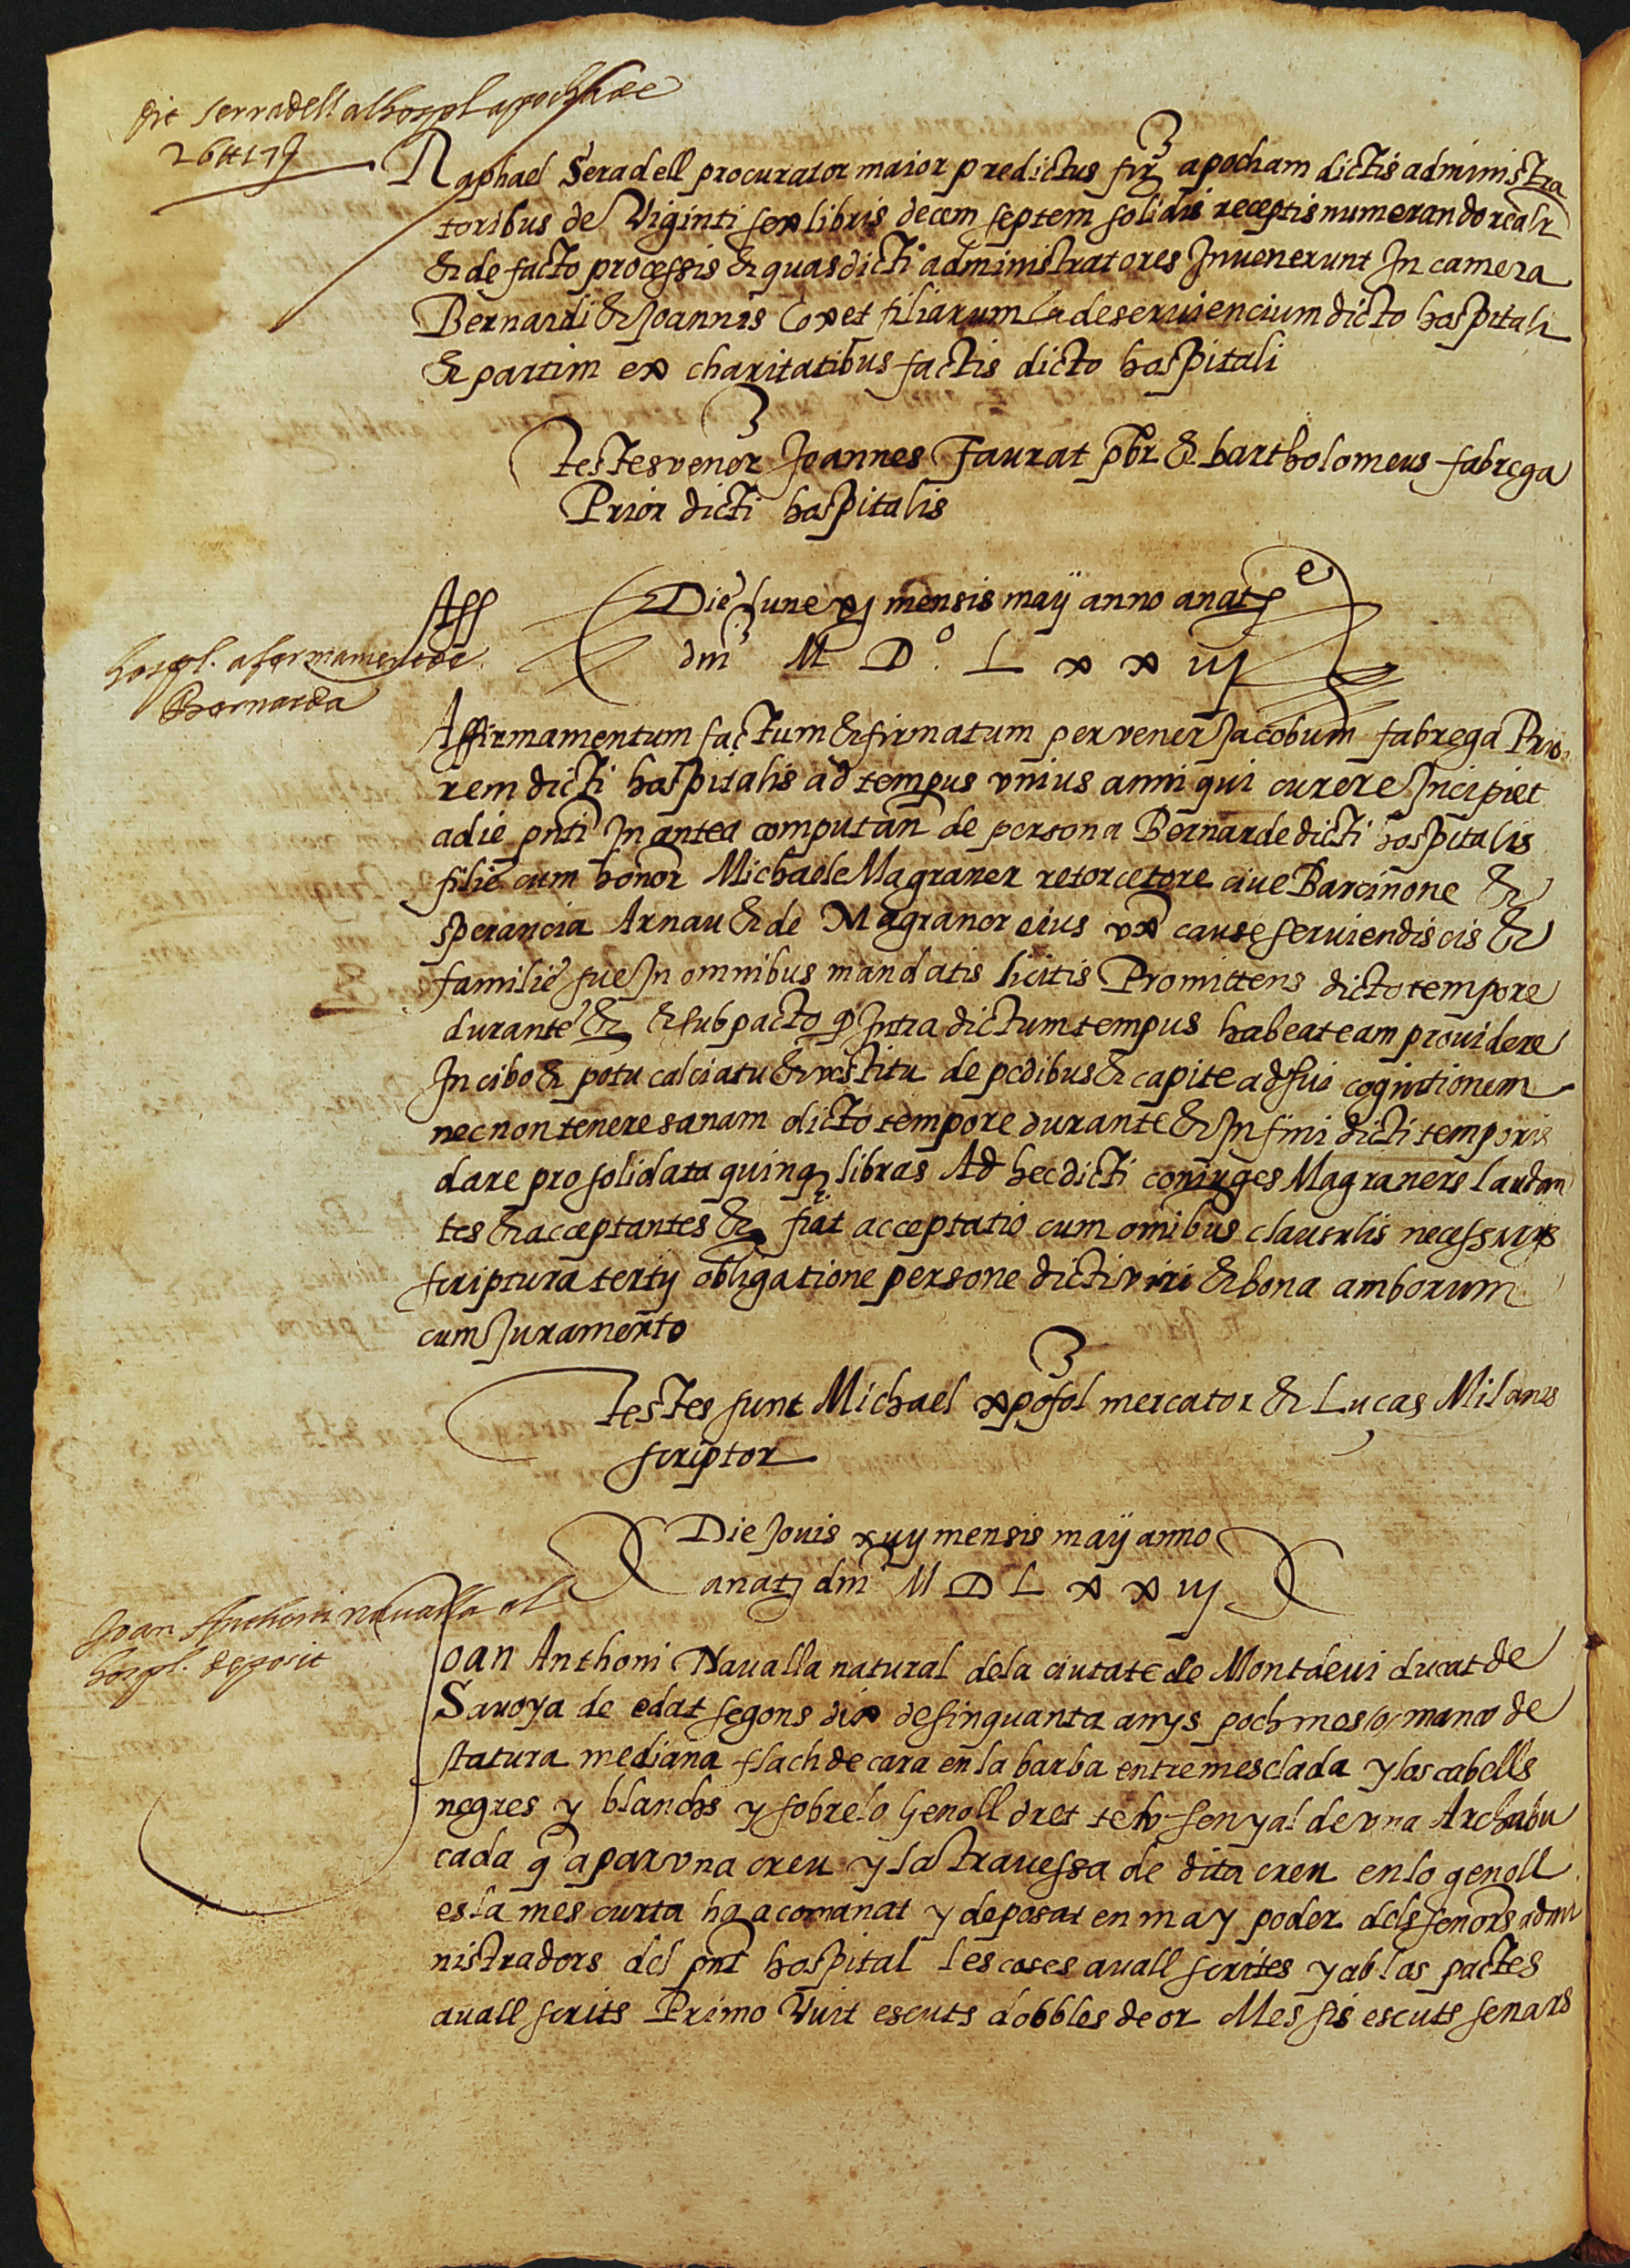 dit Serradell al hospl apocha de
26 ℔ 17 s
Raphael Seradell procurator maior predictus firᵗ apocham dictis administra
toribus de Viginti sex libris decem septem solidis receptis numerando realr
& de facto processis & quas dicti administratores Invenerunt In camera
Bernardi & Joannis Coxet filiarum deserviencium dicto hospitali
& partim ex charitatibus factis dicto hospitali
testes vener Joannes Faurat pbr & bartholomeus fabrega
Prior dicti hospitalis
Aff
Die lune xj mensis maÿ anno anatᵉ
dni M Dº. L x x iij
hospl. afermament de
Bernarda
Affirmamentum factum & firmatum per vener Jacobum fabrega Prio
rem dicti hospitalis ad tempus vnius anni qui curere Incipiet
a die pnti In antea computan de persona Bernarde dicti hospitalis
filie cum honor Michaele Magraner retorcetore ciue Barcinone &
sperancia Arnau & de Magraner eius vx cause serviendis eis &
familie sue In omnibus mandatis licitis Promittens dicto tempore
durante & & sub pacto q Intra dictum tempus habeat eam providere
In cibo & potu calciatu & vestitu de pedibus & capite ad sui cognitionem
necnon tenere sanam dicto tempore durante & In fini dicti temporis
dare pro solidata quinq libras Ad hec dicti coniuges Magraners laudan
tes & acceptantes & fiat acceptatio cum omibus clausulis necessarijs
scriptura tertij obligatione persone dicti viri & bona amborum
cum Juramento
testes sunt Michael xpofol mercator & Lucas Milans
scriptor
Die Jovis xiiij mensis maÿ anno
anatj dni M D L x x iij
Joan Anthoni Navalla al
hospl. deposit
Joan Anthoni Navalla natural de la ciutat de Montdevi ducat de
Savoya de edat segons dix de sinquanta anys poch mes o manco de
statura mediana flach de cara en la barba entremesclada y los cabells
negres y blanchs y sobre lo Genoll dret te lo senyal de vna Archabu
cada q apar vna creu y la travessa de dita creu en lo genoll
es la mes curta ha acomanat y deposat en ma y poder dels senors admi
nistradors del pnt hospital les coses avall scrites y ab los pactes
avall scrits Primo Vuit escuts dobbles de or Mes sis escuts senars